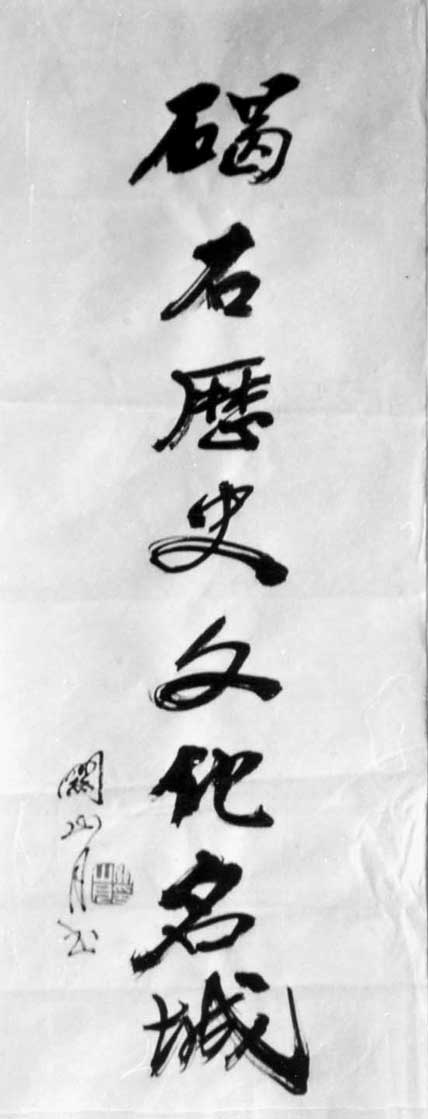 碣石歷史文化名城
關山月书